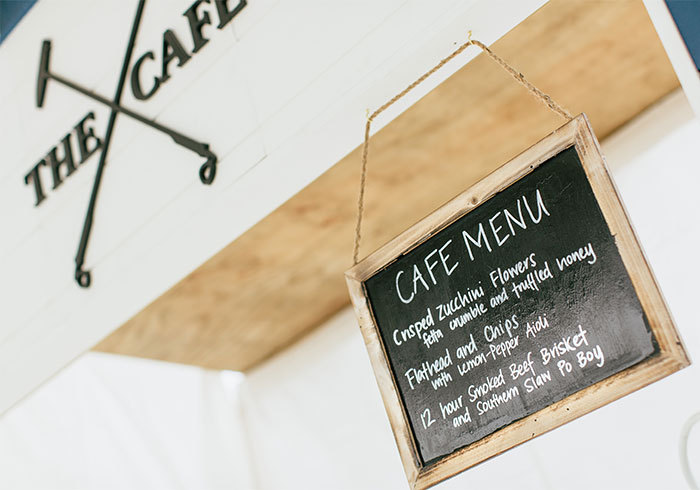 THE CAFE
CAFE MENU
Crisped Zucchini Flowers
fetta crumble and truffled honey
Flathead and Chips
with Lemon-Pepper Aioli
12 hour Smoked Beef Brisket
and Southern Slaw Po Boy